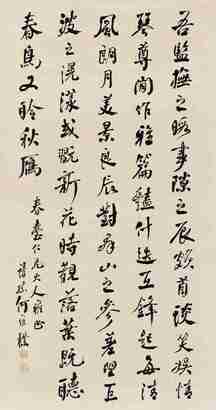 吾監撫之暇事隙之辰頗用談笑娛情
琴尊間作雅篇豔什迭互鋒起每清
風朗月美景良辰對群山之參差望巨
波之滉漾或翫新花時觀落葉既聽
春鳥又聆秋鴈
仁兄大人雅
詩孫何維樸